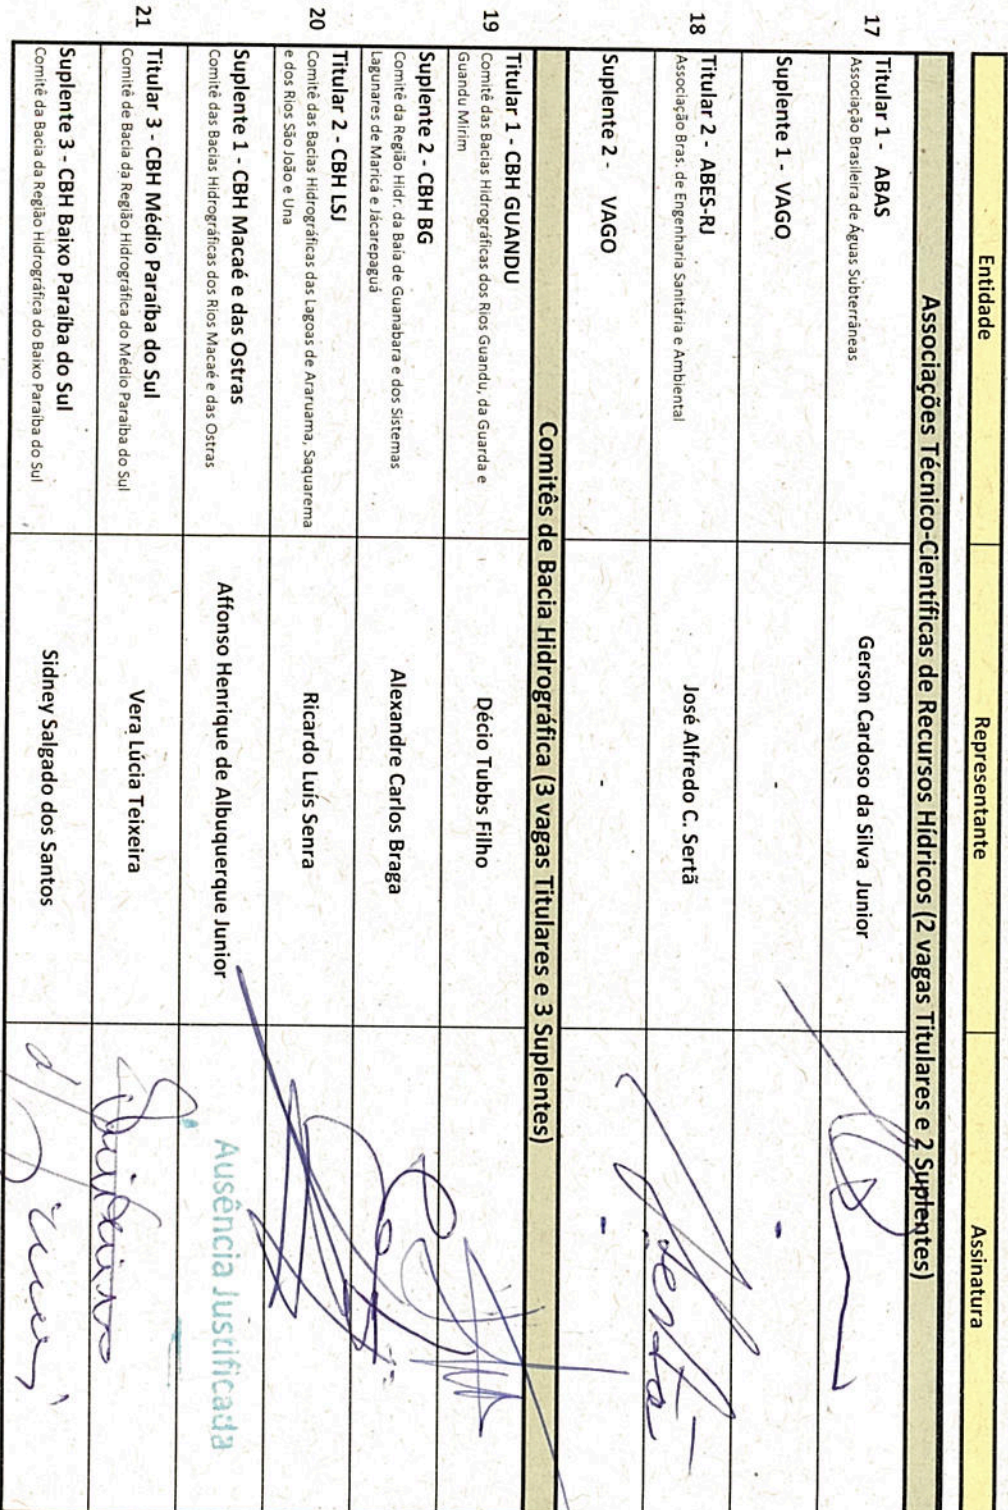 Entidade Representante Assinatura
Associações Técnico-Científicas de Recursos Hídricos (2 vagas Titulares e 2 Suplentes)
17 Titular 1 - ABAS
Associação Brasileira de Águas Subterrâneas
Gerson Cardoso da Silva Junior
Suplente 1 - VAGO - -
18 Titular 2 - ABES-RJ
Associação Bras. de Engenharia Sanitária e Ambiental
José Alfredo C. Sertã
Suplente 2 - VAGO - -
Comitês de Bacia Hidrográfica (3 vagas Titulares e 3 Suplentes)
19 Titular 1 - CBH GUANDU
Comitê das Bacias Hidrográficas dos Rios Guandu, da Guarda e
Guandu Mirim
Décio Tubbs Filho
Suplente 2 - CBH BG
Comitê da Região Hidr. da Baía de Guanabara e dos Sistemas
Lagunares de Maricá e Jacarepaguá
Alexandre Carlos Braga
20 Titular 2 - CBH LSJ
Comitê das Bacias Hidrográficas das Lagoas de Araruama, Saquarema
e dos Rios São João e Una
Ricardo Luís Senra
Suplente 1 - CBH Macaé e das Ostras
Comitê das Bacias Hidrográficas dos Rios Macaé e das Ostras
Affonso Henrique de Albuquerque Junior
Ausência Justificada
21 Titular 3 - CBH Médio Paraíba do Sul
Comitê de Bacia da Região Hidrográfica do Médio Paraíba do Sul
Vera Lúcia Teixeira
Suplente 3 - CBH Baixo Paraíba do Sul
Comitê da Bacia da Região Hidrográfica do Baixo Paraíba do Sul
Sidney Salgado dos Santos